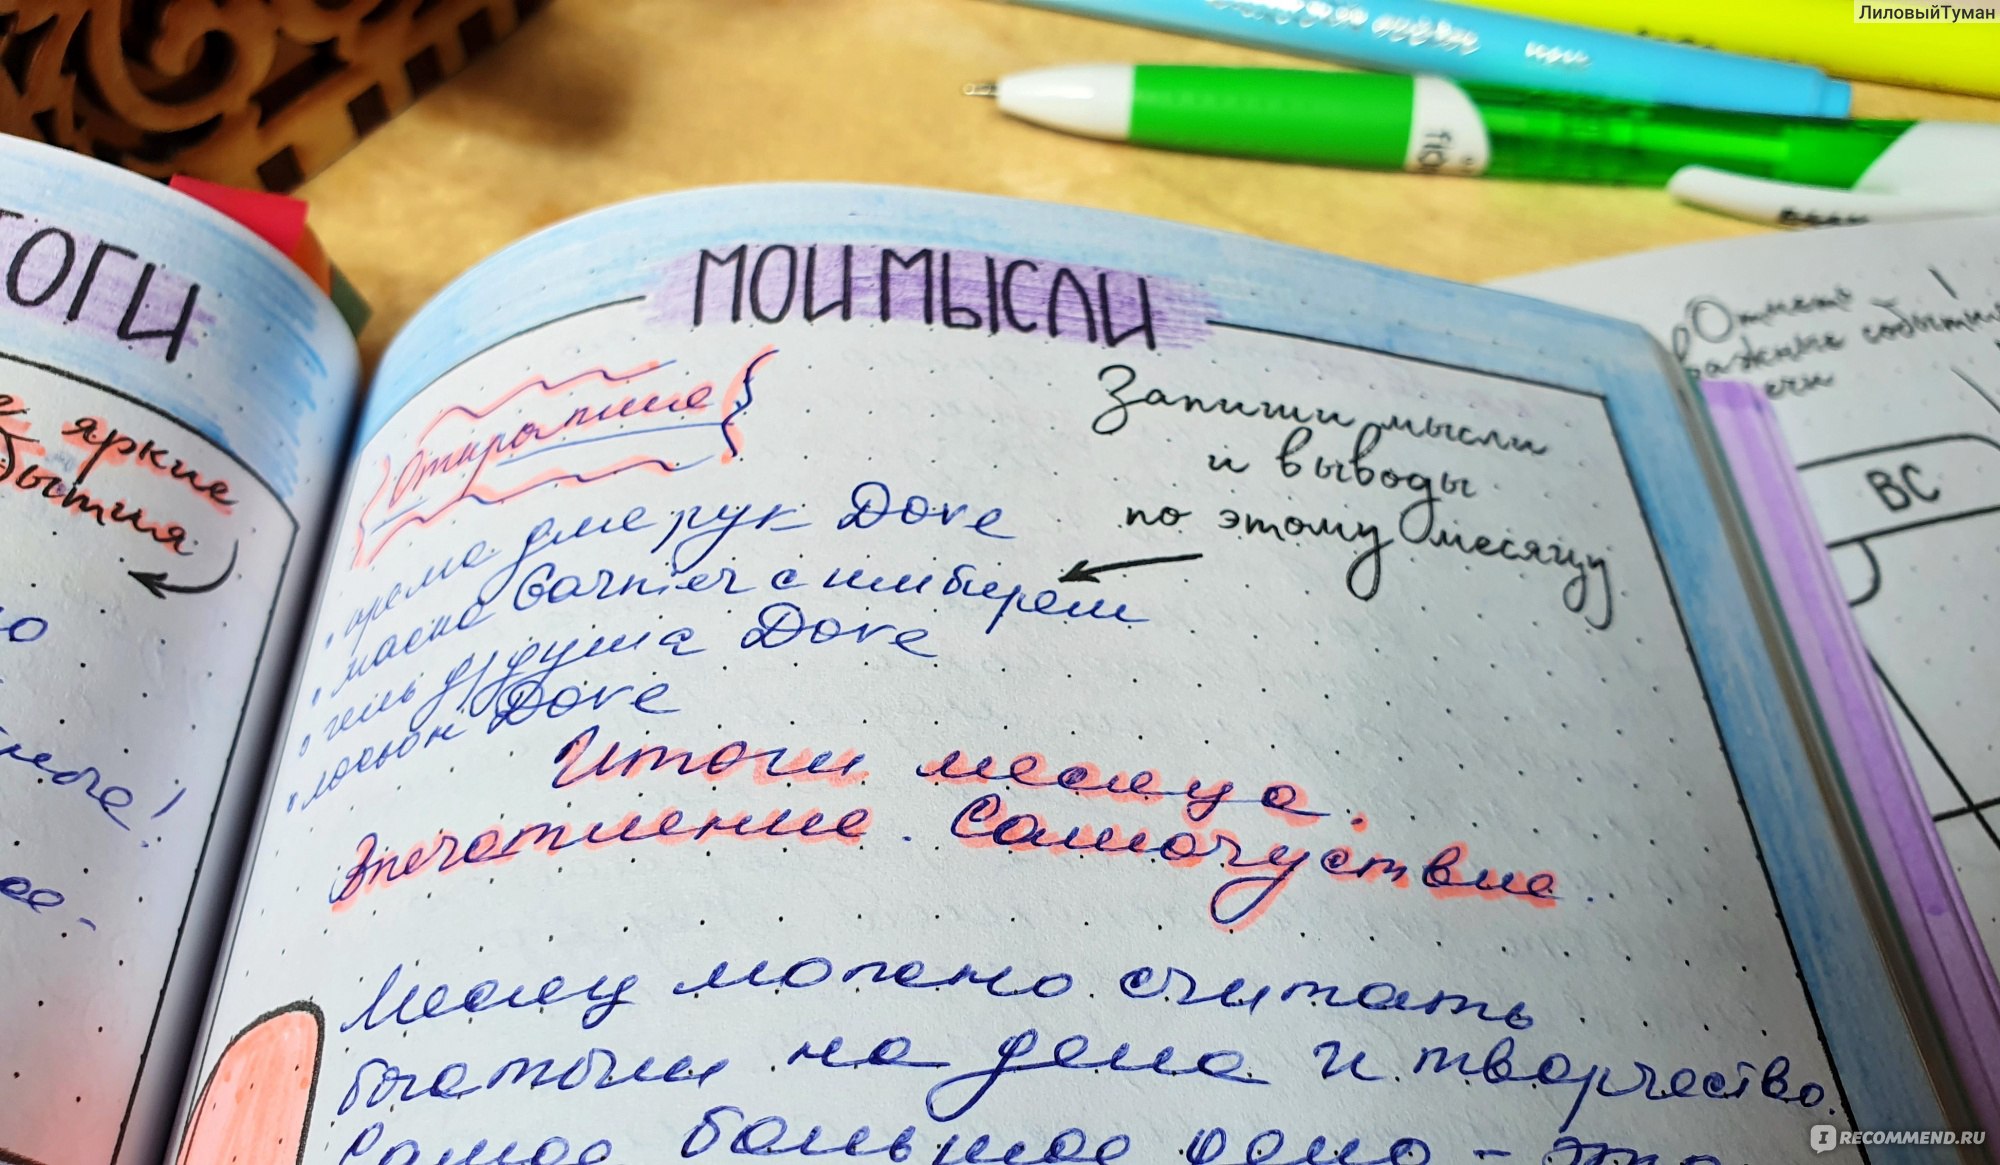 ЛиловыйТуман
МОИ МЫСЛИ
Запиши мысли
и выводы
по этому месяцу
Открытие
• крема для рук Dove
• масло Garnier с имбирем
• гель д/душа Dove
• лосьон Dove
Итоги месяца.
Впечатление. Самочуствие.
Месяц можно считать
богатым на дела и творчество.
Самое большое дело - это
ТОГИ
яркие
бытия
Отметь
важные события
ВС
IRECOMMEND.RU